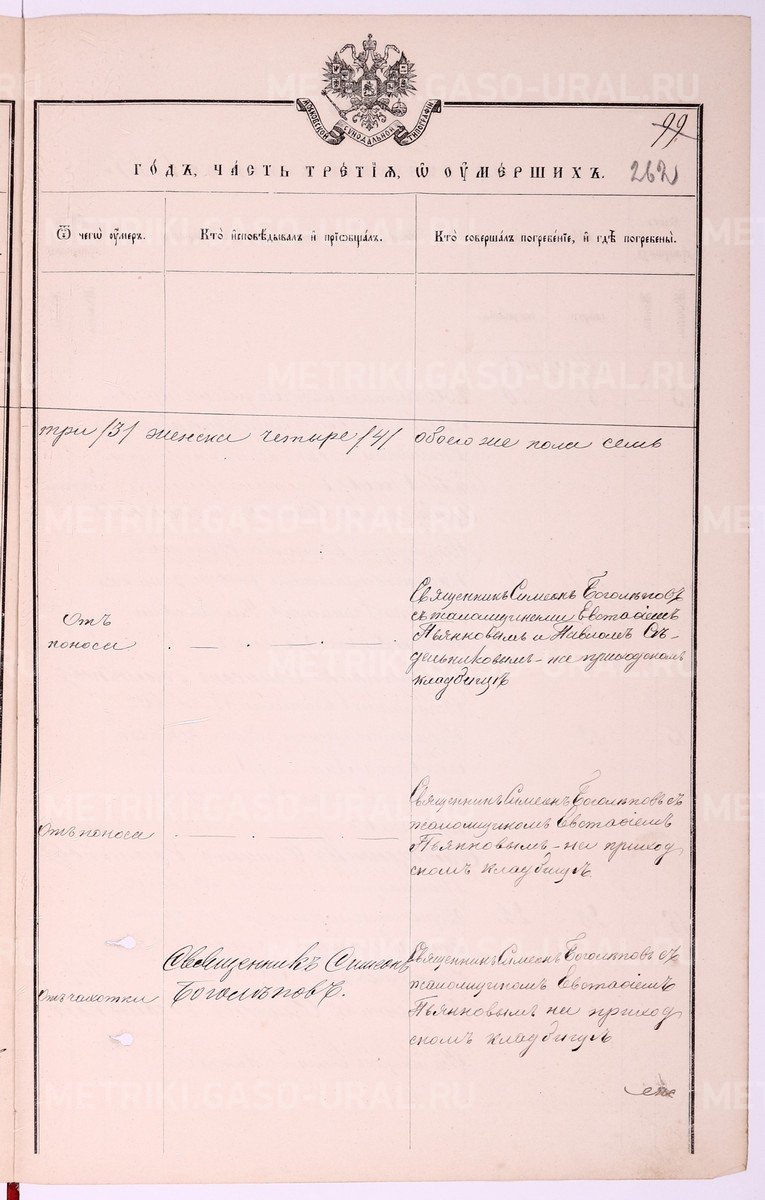 МОСКОВСКОЙ СѴНОДАЛЬНОЙ ТИПОГРАФІИ
99.
262
ГОДЪ, ЧАСТЬ ТРЕТІѦ, Ѡ ОУМЕРШИХЪ.
Ѿ чегѡ оумеръ.
Кто исповѣдывалъ и прїѡбщалъ.
Кто совершалъ погребенїе, и гдѣ погребены.
три /3/ женска четыре /4/ обоего же пола семь
Отъ
поноса
Священникъ Симеонъ Боголѣповъ
съ псаломщиками Евстаѳіемъ
Пьянковымъ и Павломъ Сѣ-
дельниковымъ - на приходскомъ
кладбищѣ
Отъ поноса
Священникъ Симеонъ Боголѣповъ съ
псаломщикомъ Евстаѳіемъ
Пьянковымъ - на приход
скомъ кладбищѣ
Отъ чахотки
Священникъ Симеонъ
Боголѣповъ.
Священникъ Симеонъ Боголѣповъ съ
псаломщикомъ Евстаѳіемъ
Пьянковымъ на приход
скомъ кладбищѣ
METRIKI.GASO-URAL.RU